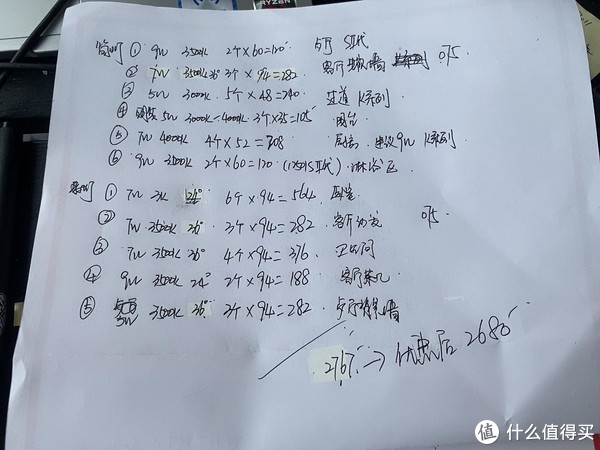 RYZEN
筒灯 ① 9W 3500K 2个×60=120 S亚代
② 7W 3500K 36° 3个×94=282 客厅 075
③ 5W 3000K 5个×48=240 过道 K系列
④ 5W 3000K-4000K 3个×35=105 阳台
⑤ 7W 4000K 4个×52=208 厨房 建议9W K系列
⑥ 9W 3500K 2个×60=120 (125 S亚代) 淋浴区
射灯 ① 7W 3K 24° 6个×94=564 卧室
② 7W 3500K 36° 3个×94=282 客厅 075
③ 7W 3500K 36° 4个×94=376 卫生间
④ 9W 3500K 24° 2个×94=188 客厅茶几
⑤ 5W 3500K 36° 3个×94=282 墙
2767 → 优惠后 2680
值 什么值得买